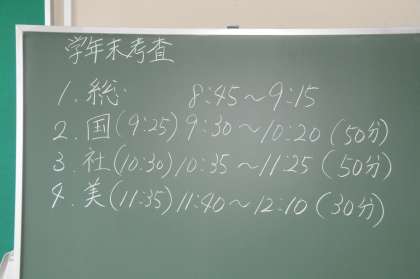 学年末考査
1. 総 8:45～9:15
2. 国(9:25) 9:30～10:20 (50分)
3. 社(10:30) 10:35～11:25 (50分)
4. 美(11:35) 11:40～12:10 (30分)